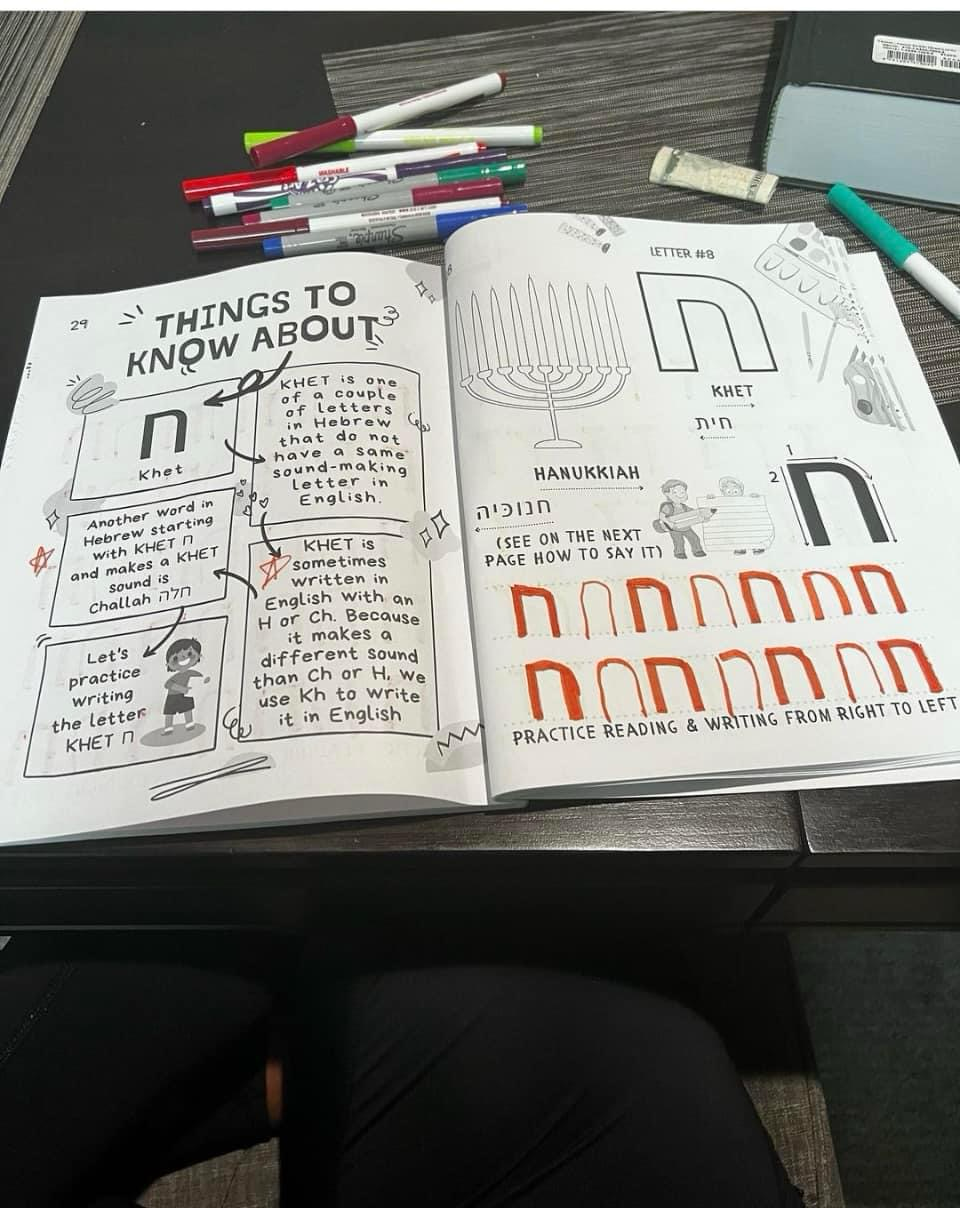 WASHABLE
Sharpie
29
THINGS TO
KNOW ABOUT
ח
Khet
KHET is one
of a couple
of letters
in Hebrew
that do not
have a same
sound-making
letter in
English.
Another word in
Hebrew starting
with KHET ח
and makes a KHET
sound is
Challah חלה
KHET is
sometimes
written in
English with an
H or Ch. Because
it makes a
different sound
than Ch or H, we
use Kh to write
it in English
Let's
practice
writing
the letter
KHET ח
LETTER #8
ח
KHET
חית
HANUKKIAH
חנוכיה
(SEE ON THE NEXT
PAGE HOW TO SAY IT)
1
2
ח
ח ח ח ח ח ח ח
ח ח ח ח ח ח ח
PRACTICE READING & WRITING FROM RIGHT TO LEFT